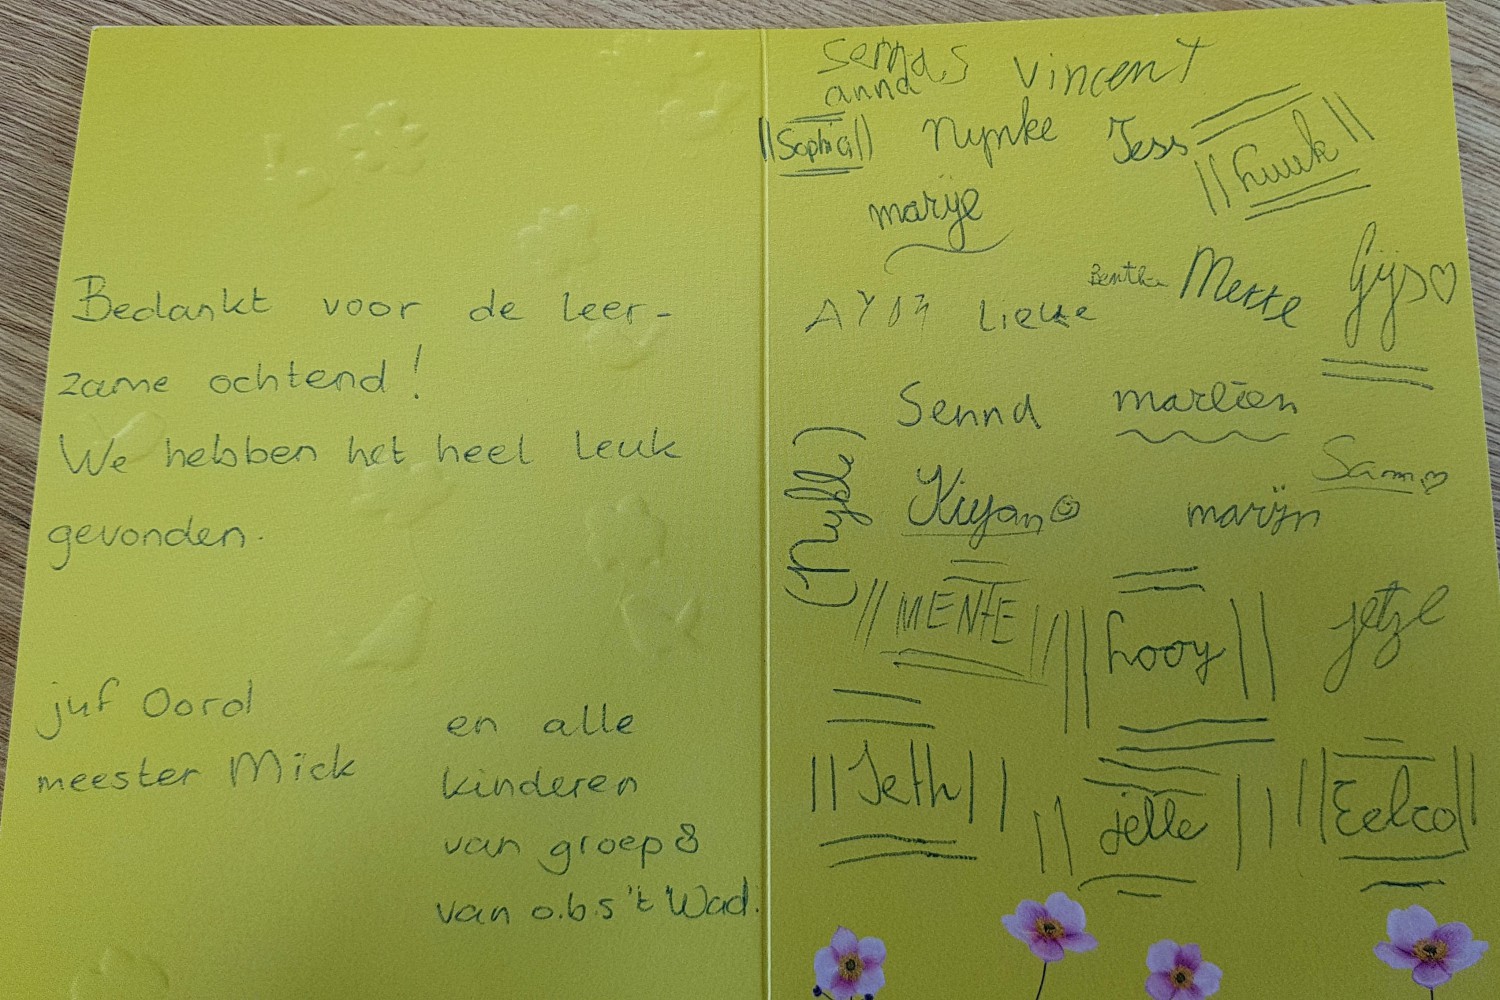 Bedankt voor de leer-
zame ochtend!
We hebben het heel leuk
gevonden.
juf Oord
meester Mick
en alle
kinderen
van groep 8
van o.b.s 't Wad.
Vincent
anna
Sophia Nynke Jess Luuk
marije
Lieke Mette Gijs
Senna
Kiyan marijn Sam
MENTE Looy jetze
Jeth jelle Eelco